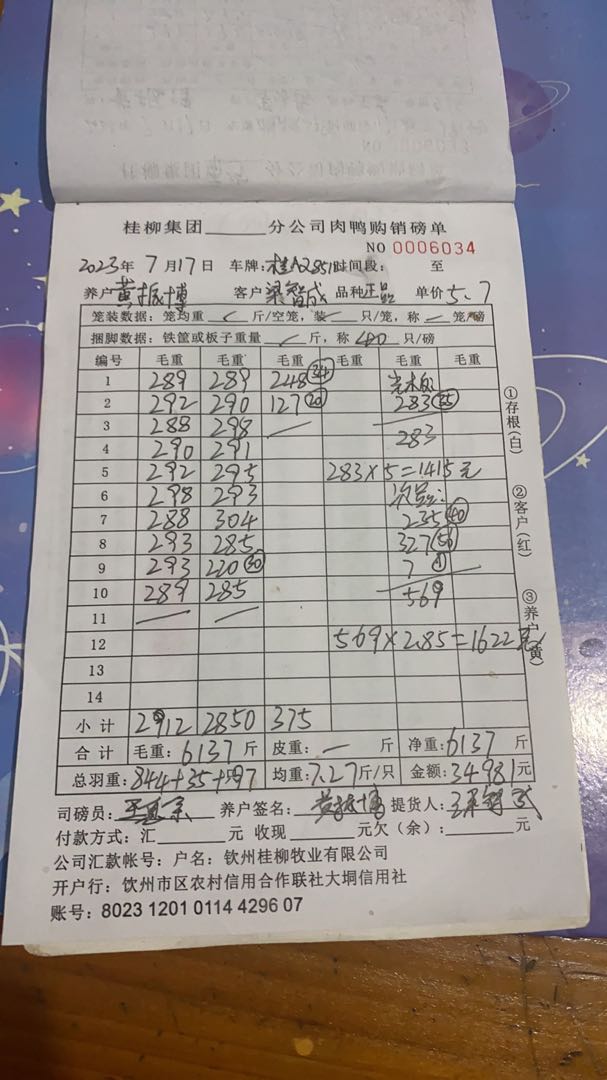 桂柳集团______分公司肉鸭购销磅单
NO 0006034
2023年 7月17日 车牌:桂A2851 时间段: 至
养户黄振博 客户梁智成 品种正品 单价5.7
笼装数据:笼均重 ✓ 斤/空笼,装 — 只/笼,称 — 笼/磅
捆脚数据:铁筐或板子重量 ✓ 斤,称 40 只/磅
编号 毛重 毛重 毛重 毛重 毛重 毛重
1 289 289 248(34)
2 292 290 127(20) 283(35)
3 288 298 —
4 290 291 283
5 292 295 283×5=1415元
6 298 293 次品:
7 288 304 235(40)
8 293 285 327(56)
9 293 220(30) 7(1)
10 289 285 569
11 — —
12 569×2.85=1622元
13
14
小计 2912 2850 375
合计 毛重:6137斤 皮重:— 斤 净重:6137斤
总羽重:844+35+97 均重:7.27斤/只 金额:34981元
司磅员: 养户签名:黄振博 提货人:
付款方式:汇______元 收现______元欠(余):______元
公司汇款帐号:户名:钦州桂柳牧业有限公司
开户行:钦州市区农村信用合作联社大垌信用社
账号:8023 1201 0114 4296 07
①存根(白)
②客户(红)
③养户(黄)